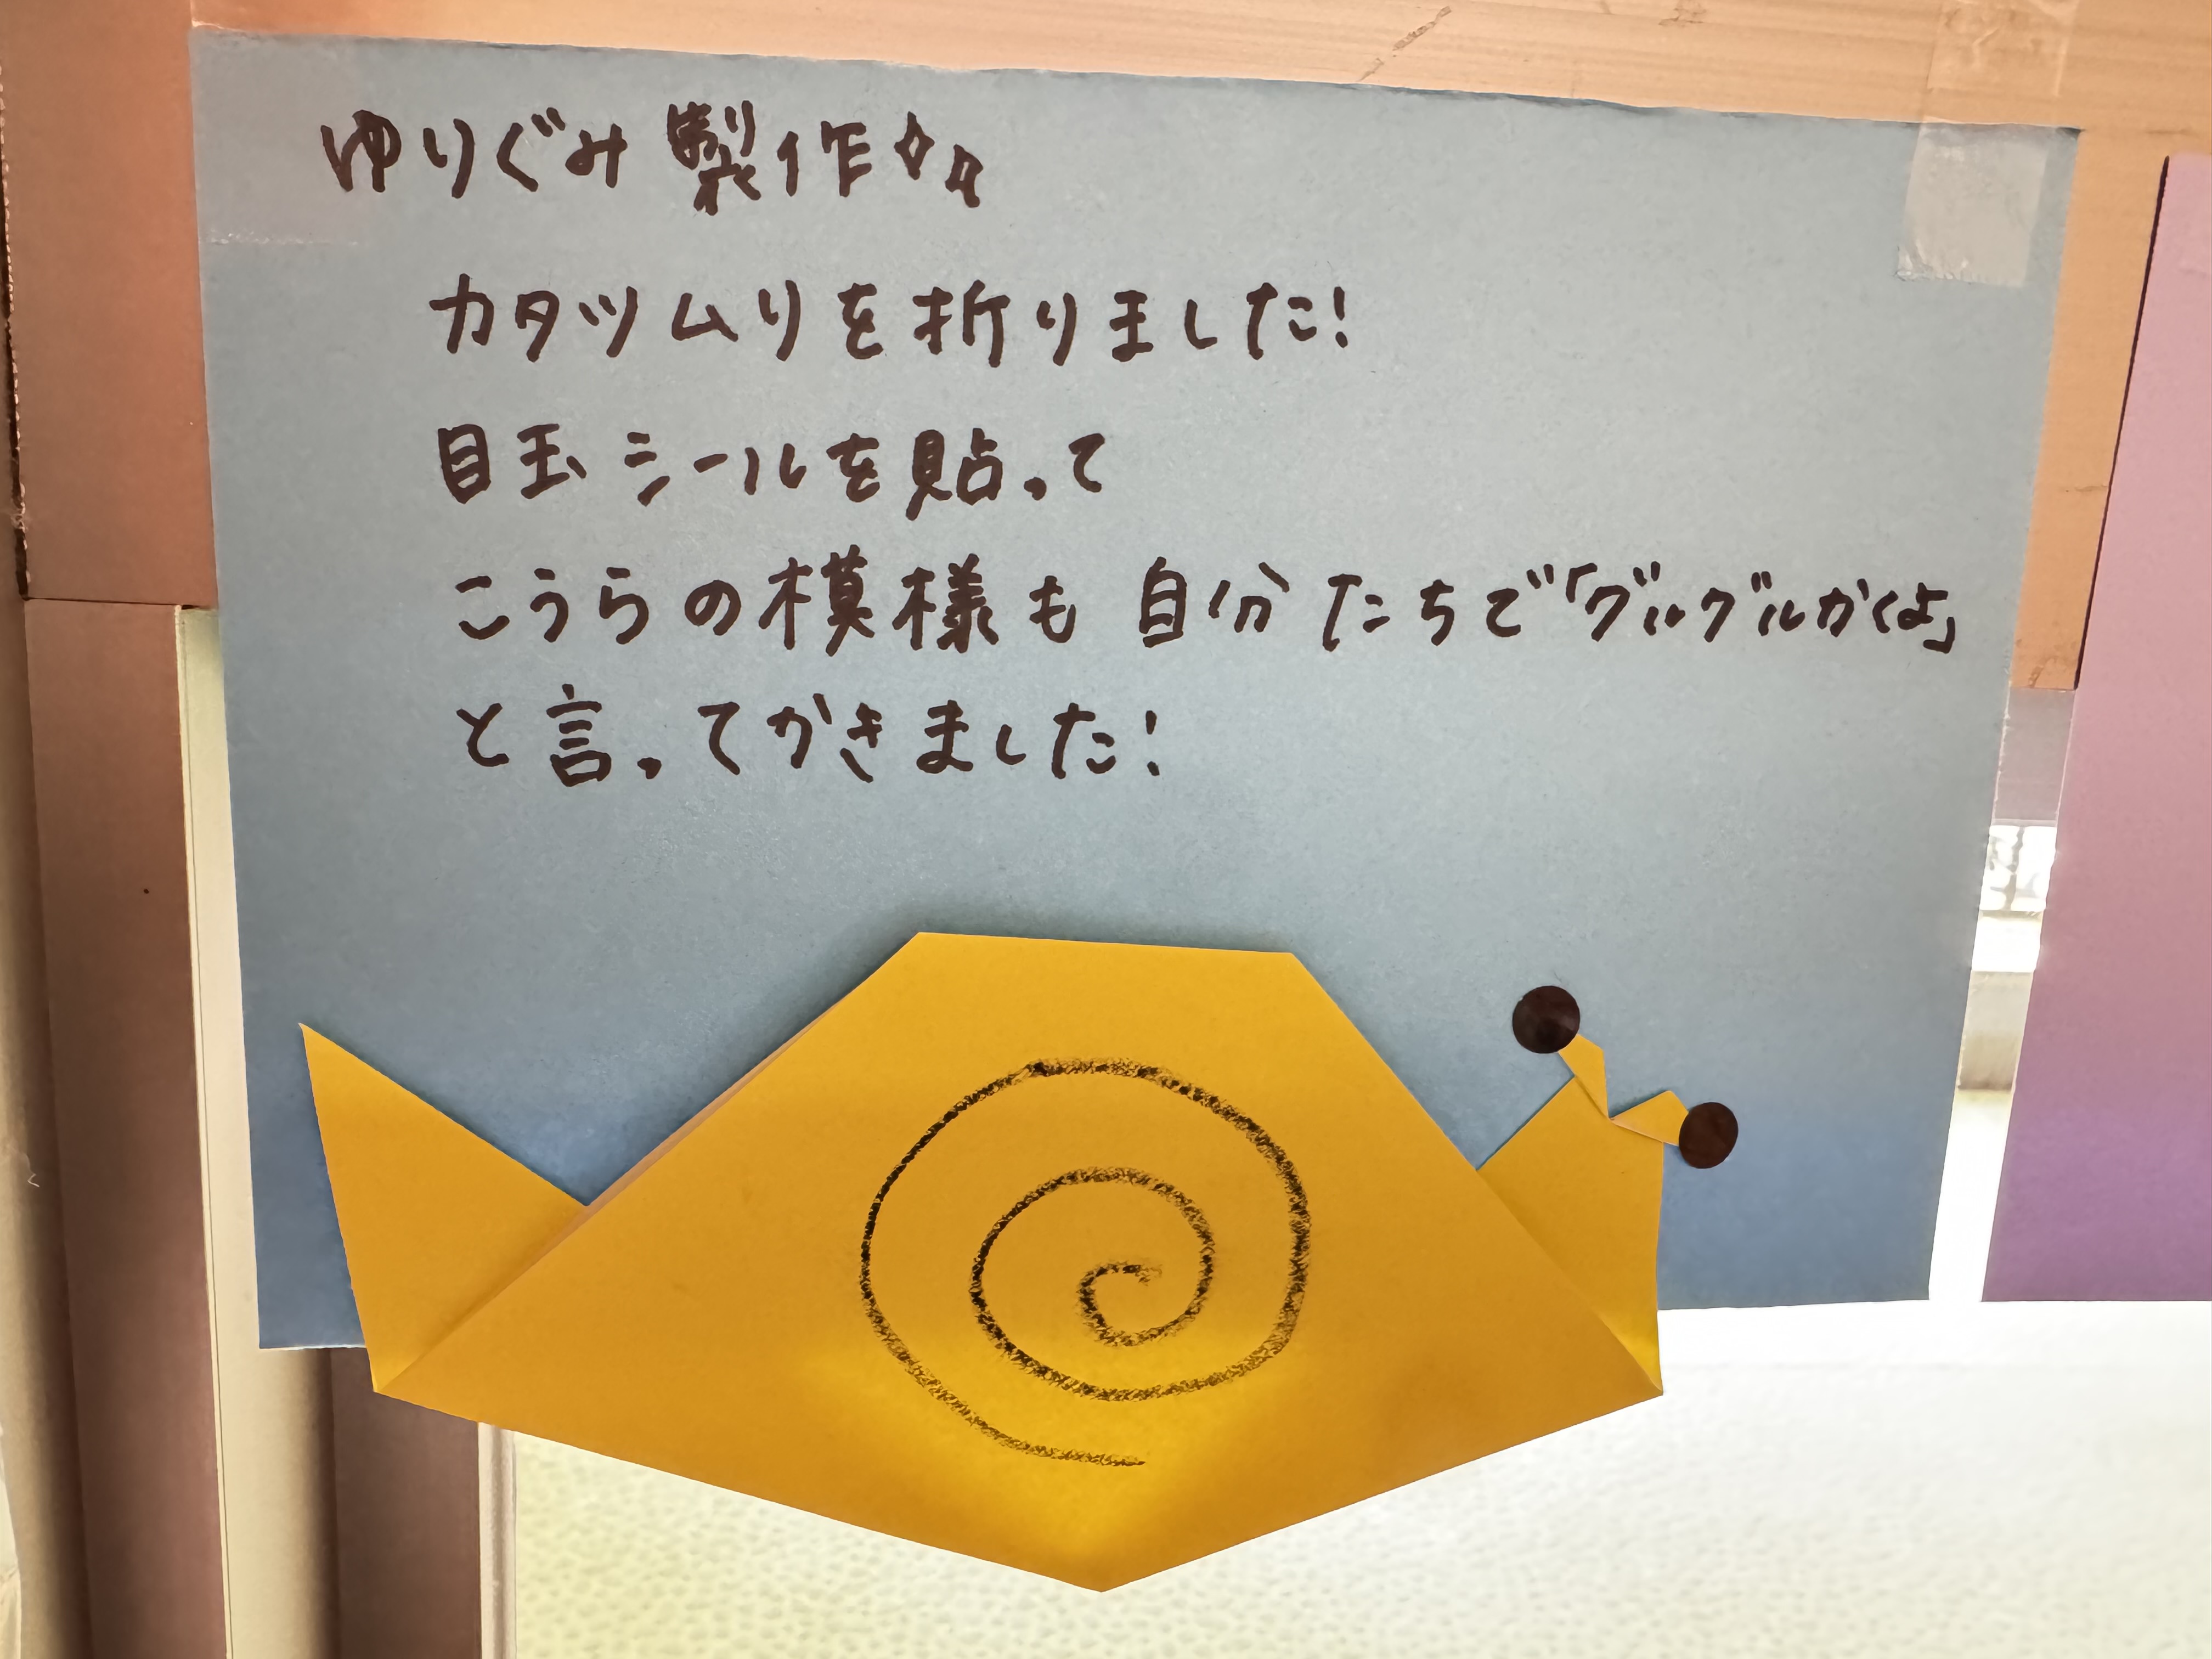 ゆりぐみ 製作
カタツムリを折りました!
目玉シールを貼って
こうらの模様も 自分たちで「グルグルかくよ」
と言ってかきました!